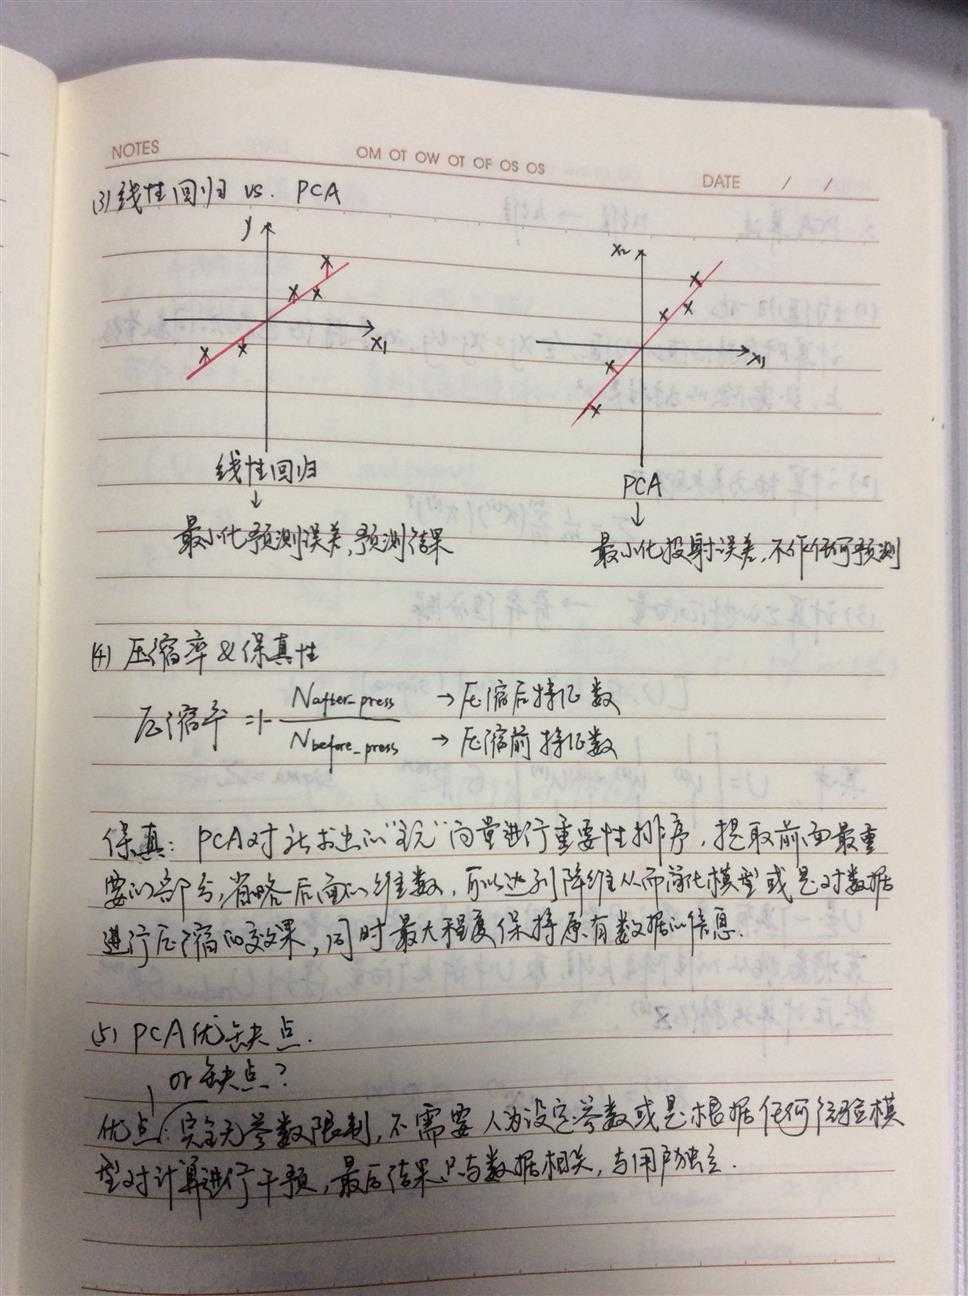 NOTES
OM OT OW OT OF OS OS
DATE / /
(3) 线性回归 vs. PCA
y
x1
x2
x1
线性回归
PCA
↓
↓
最小化预测误差,预测结果
最小化投射误差,不作任何预测
(4) 压缩率 & 保真性
压缩率 = 1- Nafter_press → 压缩后特征数
Nbefore_press → 压缩前特征数
保真: PCA对新求出的“主元”向量进行重要性排序, 提取前面最重
要的部分,省略后面的维数, 可以达到降维从而简化模型或是对数据
进行压缩的效果, 同时最大程度保持原有数据的信息.
(5) PCA优缺点.
or 缺点?
优点: 完全无参数限制, 不需要人为设定参数或是根据任何经验模
型对计算进行干预, 最后结果只与数据相关, 与用户独立.